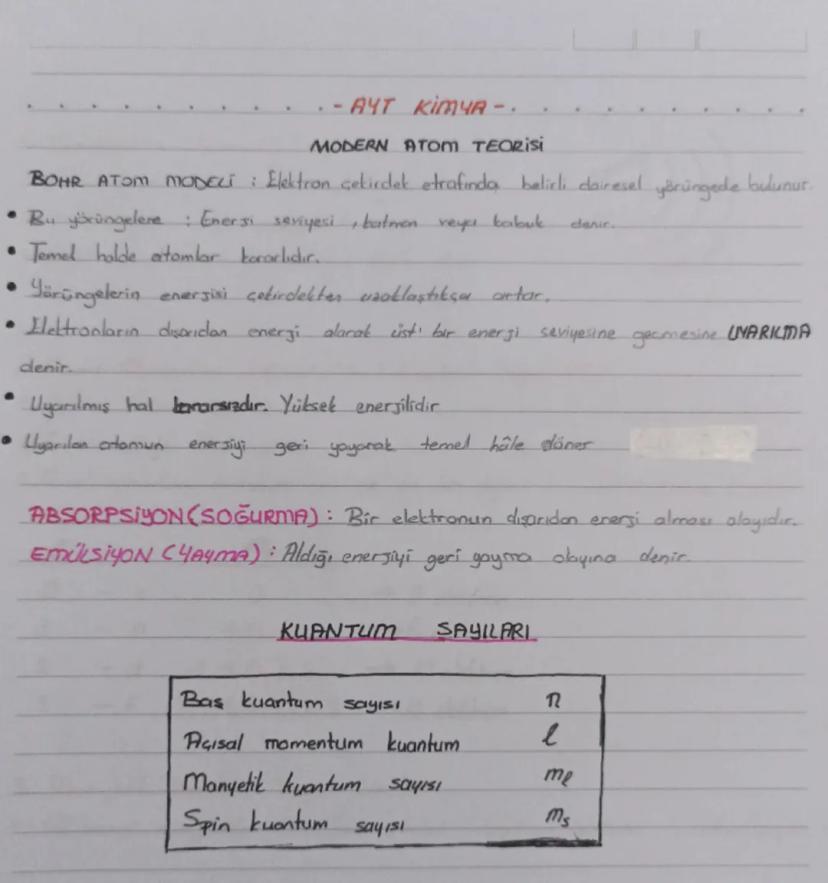 - AYT KİMYA -
MODERN ATOM TEORİSİ
BOHR ATOM MODELİ : Elektron çekirdek etrafında belirli dairesel yörüngede bulunur.
• Bu yörüngelere : Enerji seviyesi, katman veya kabuk denir.
• Temel halde atomlar kararlıdır.
• Yörüngelerin enerjisi çekirdekten uzaklaştıkça artar.
• Elektronların dışarıdan enerji alarak üst bir enerji seviyesine geçmesine UYARILMA
denir.
• Uyarılmış hal kararsızdır. Yüksek enerjilidir
• Uyarılan atomun enerjiyi geri yayarak temel hâle döner
ABSORPSİYON (SOĞURMA) : Bir elektronun dışarıdan enerji alması olayıdır.
EMÜLSİYON (YAYMA) : Aldığı enerjiyi geri yayma olayına denir.
KUANTUM SAYILARI
Baş kuantum sayısı n
Açısal momentum kuantum l
Manyetik kuantum sayısı mℓ
Spin kuantum sayısı ms